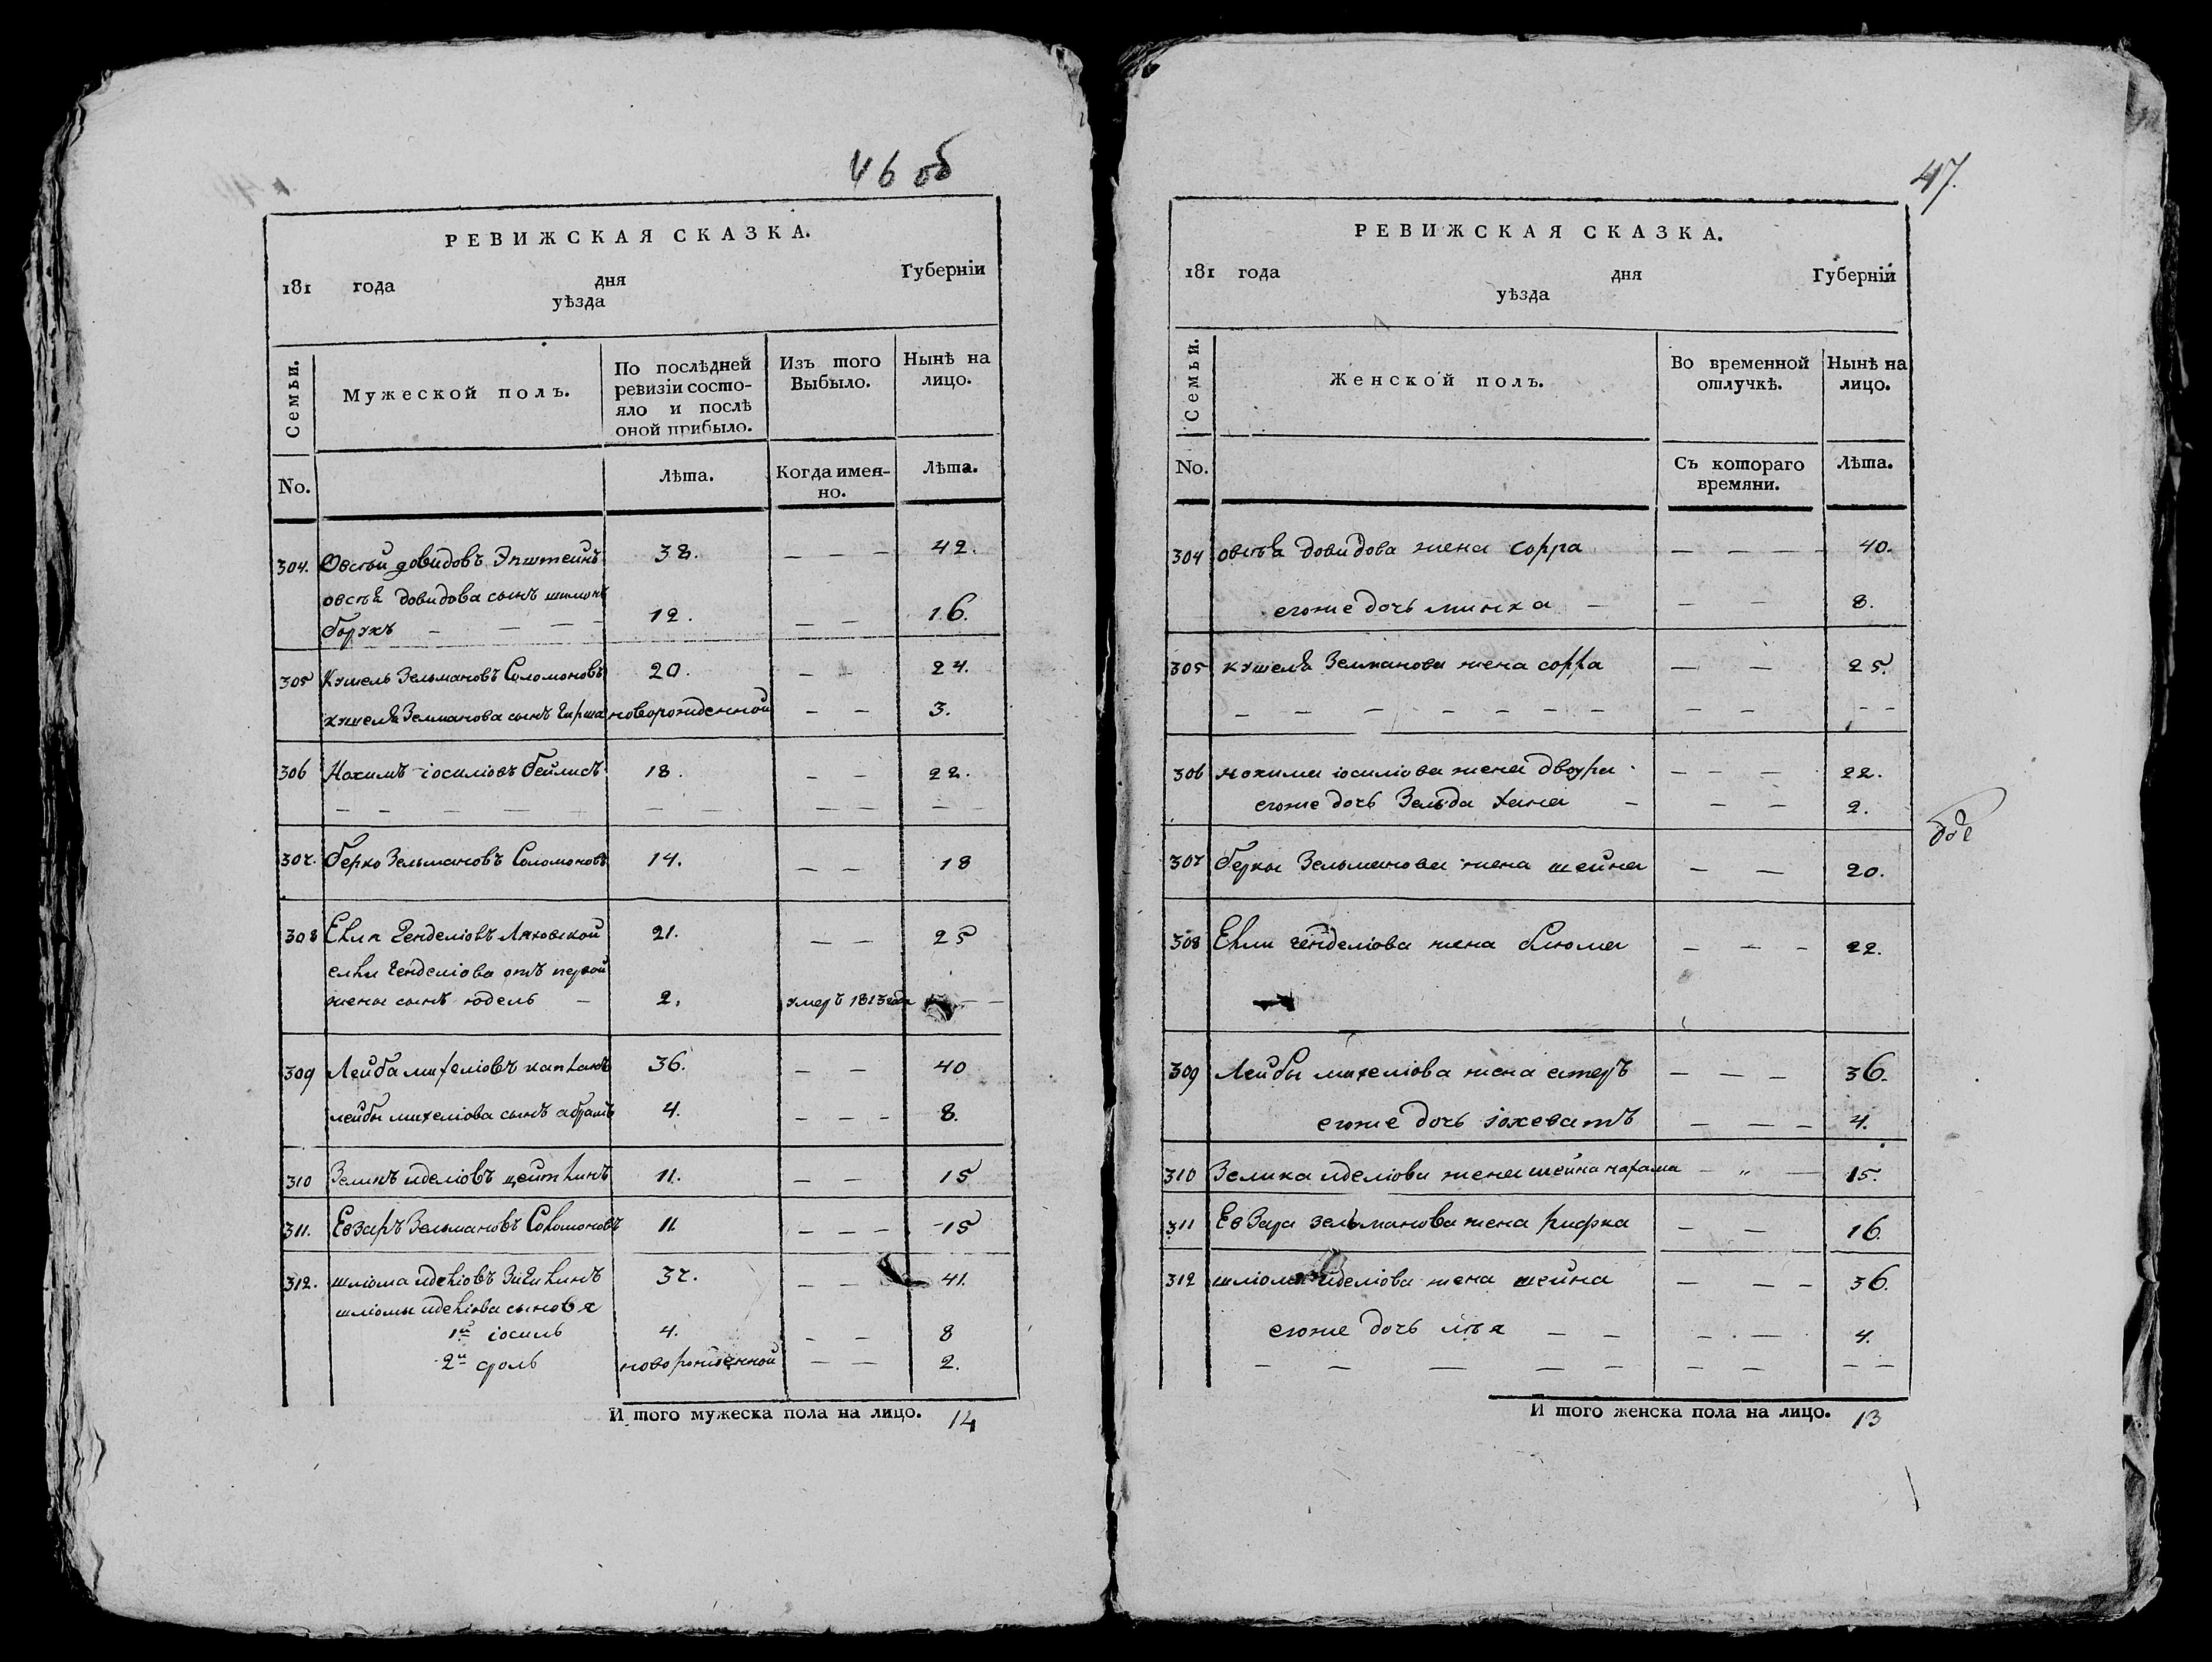 46 об
РЕВИЖСКАЯ СКАЗКА.
181 года дня Губернiи
уѣзда
Семьи.
Мужеской полъ.
По послѣдней ревизiи состо-
яло и послѣ оной прибыло.
Изъ того Выбыло.
Нынѣ на лицо.
No.
Лѣта.
Когда имен-
но.
Лѣта.
304. Овсѣй довидовъ Эпштейнъ 38. — — — 42.
овсѣя довидова сынъ шимонъ
борухъ — — — — 12. — — 16.
305 Кушель Зельмановъ Соломоновъ 20. — — 24.
кушеля Зелманова сынъ гирша новорожденной — — 3.
306 Нохимъ iосилiовъ бейлисъ 18. — — 22.
— — — — — — — — — —
307. берко Зельмановъ Соломоновъ 14. — — 18
308 Елия Генделiовъ Ляховской 21. — — 25
елии генделiова отъ первой
жены сынъ юдель — 2. умеръ 1813 года — —
309 Лейба михелiовъ капланъ 36. — — 40
лейбы михелiова сынъ абрамъ 4. — — — 8.
310 Зеликъ иделiовъ цейтлинъ 11. — — 15
311. Евзаръ Зельмановъ Соломоновъ 11 — — — 15
312. шлiома иделiовъ 37. — — 41.
шлiомы иделiова сыновя
1й iосиль 4. — — 8
2й фоль новорожденной — — 2.
И того мужеска пола на лицо. 14
47.
РЕВИЖСКАЯ СКАЗКА.
181 года дня Губернiи
уѣзда
Семьи.
Женской полъ.
Во временной отлучкѣ.
Нынѣ на лицо.
No.
Съ котораго времяни.
Лѣта.
304 овсѣя довидова жена сорра — — — — 40.
егоже дочь минха — — — 8.
305 кушеля Зелманова жена сорра — — 25.
— — — — — — — — — — —
306 нохима iосилiова жена двоура — — — 22.
егоже дочь Зельда хана — — — 2.
307 берки Зельманова жена шейна — — 20.
308 Елии генделiова жена блюма — — — 22.
309 Лейбы михелiова жена естеръ — — — 36.
егоже дочь iохеватъ — — — 4.
310 Зелика иделiова жена шейна нахама — „ — 15.
311 Евзара зельманова жена рифка — — 16.
312 шлiомы иделiова жена шейна — — — 36.
егоже дочь лѣя — — — — 4.
— — — — — — — — —
И того женска пола на лицо. 13